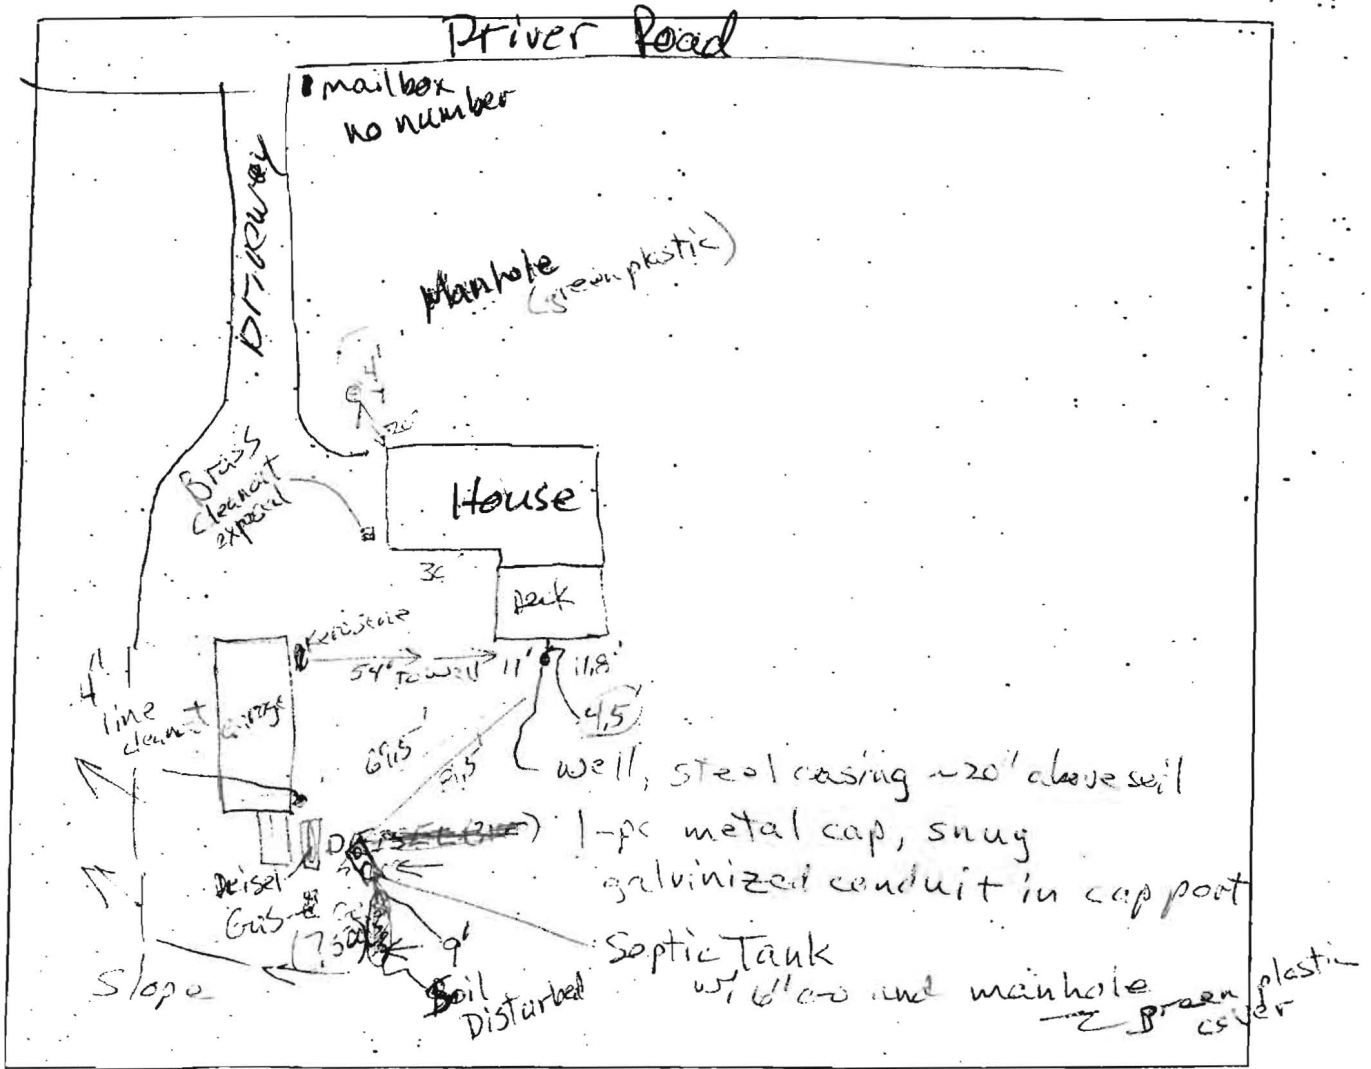 Driver Road
mailbox
no number
Driveway
Manhole
(green plastic)
4'
20'
Brass
cleanout
exposed
House
Deck
Kerosene
54' to well
11'
11.8'
4.5'
4"
line
cleanout
garage
69.5'
well, steel casing ~20" above soil
1-pc metal cap, snug
galvinized conduit in cap port
Deisel
Gas
9'
Septic Tank
w/ 6" co and manhole
green plastic
cover
Soil
Disturbed
Slope